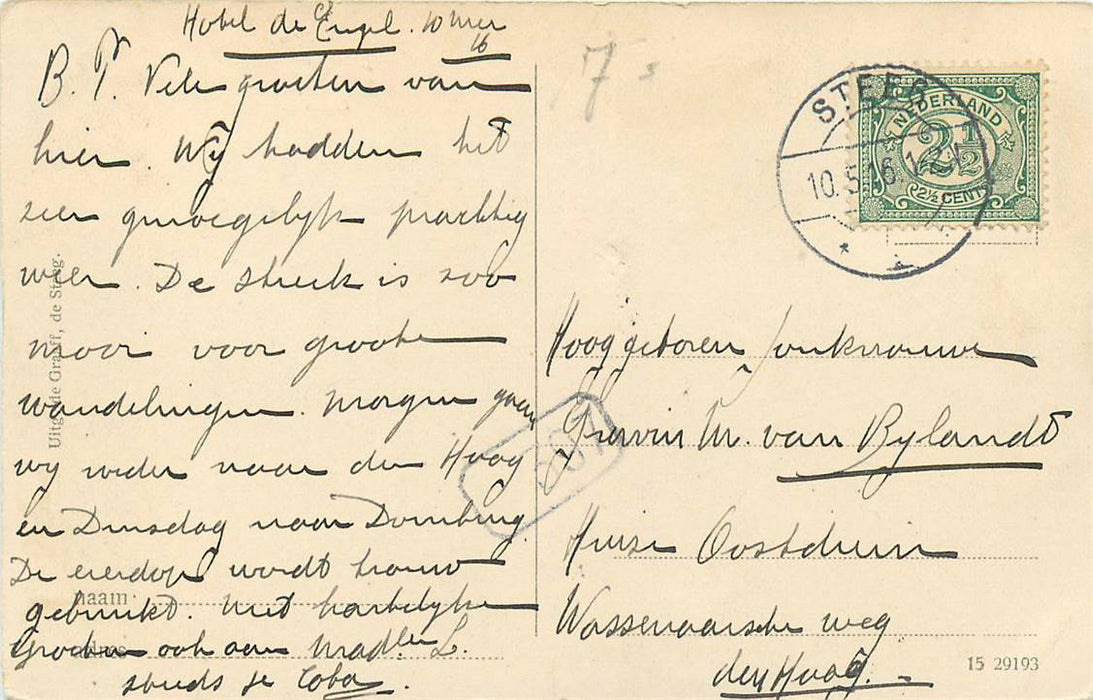 Hotel de Engel. 10 Mei
16
B. T. Vele groeten van
hier. Wij hadden het
zeer genoegelijk prachtig
weer. De streek is zoo
mooi voor groote
wandelingen. Morgen gaan
wij weder naar den Haag
en Dinsdag naar Domburg.
De eierdop wordt trouw
gebruikt. Met hartelijke
groeten ook aan Madlle L.
steeds je Coba.
Uitg. de Graaff, de Steeg.
naam
7
STEEG
10.5.16.1
NEDERLAND
2½
2½ CENT
Hooggeboren Jonkvrouwe
Gravin M. van Bylandt
Huize Oostduin
Wassenaarsche weg
den Haag.
15 29193